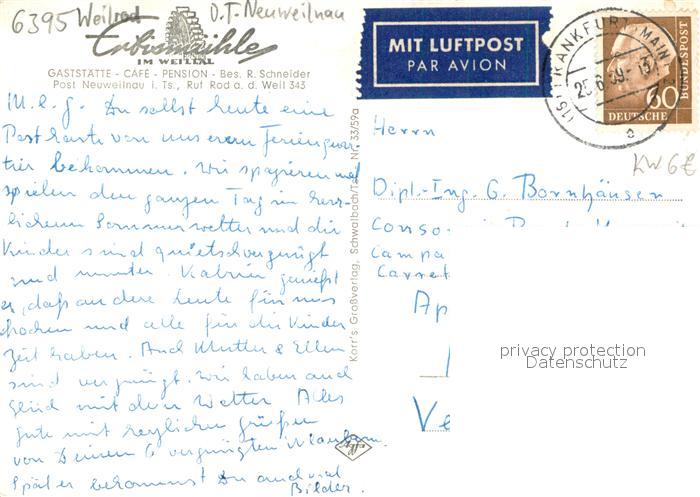 6395 Weilrod O.T. Neuweilnau
Erbismühle
IM WEILTAL
GASTSTÄTTE - CAFÉ - PENSION - Bes. R. Schneider
Post Neuweilnau i. Ts., Ruf Rod a. d. Weil 343
M. l. G. Du sollst heute eine
Postkarte von unserem Ferienquar-
tier bekommen. Wir spazieren und
spielen den ganzen Tag in herr-
lichem Sommerwetter und die
Kinder sind quietschvergnügt
und munter. Katrin genießt
es, daß andere Leute für uns
kochen und alle für die Kinder
Zeit haben. Auch Mutter & Ellen
sind vergnügt. Wir haben auch
Glück mit dem Wetter. Alles
Gute mit herzlichen Grüßen
von Deinen 6 vergnügten Urlaubern.
Später bekommst Du auch viel
Bilder.
Korr's Großverlag, Schwalbach/Ts. Nr. 33/59a
Agfa
MIT LUFTPOST
PAR AVION
(16) FRANKFURT (MAIN)
25.6.59.-13
c
60
DEUTSCHE
BUNDESPOST
KW 6€
Herrn
Dipl.-Ing. G. Bornhäusen
Conso
Campa
Carret
Ap
Ve
privacy protection
Datenschutz